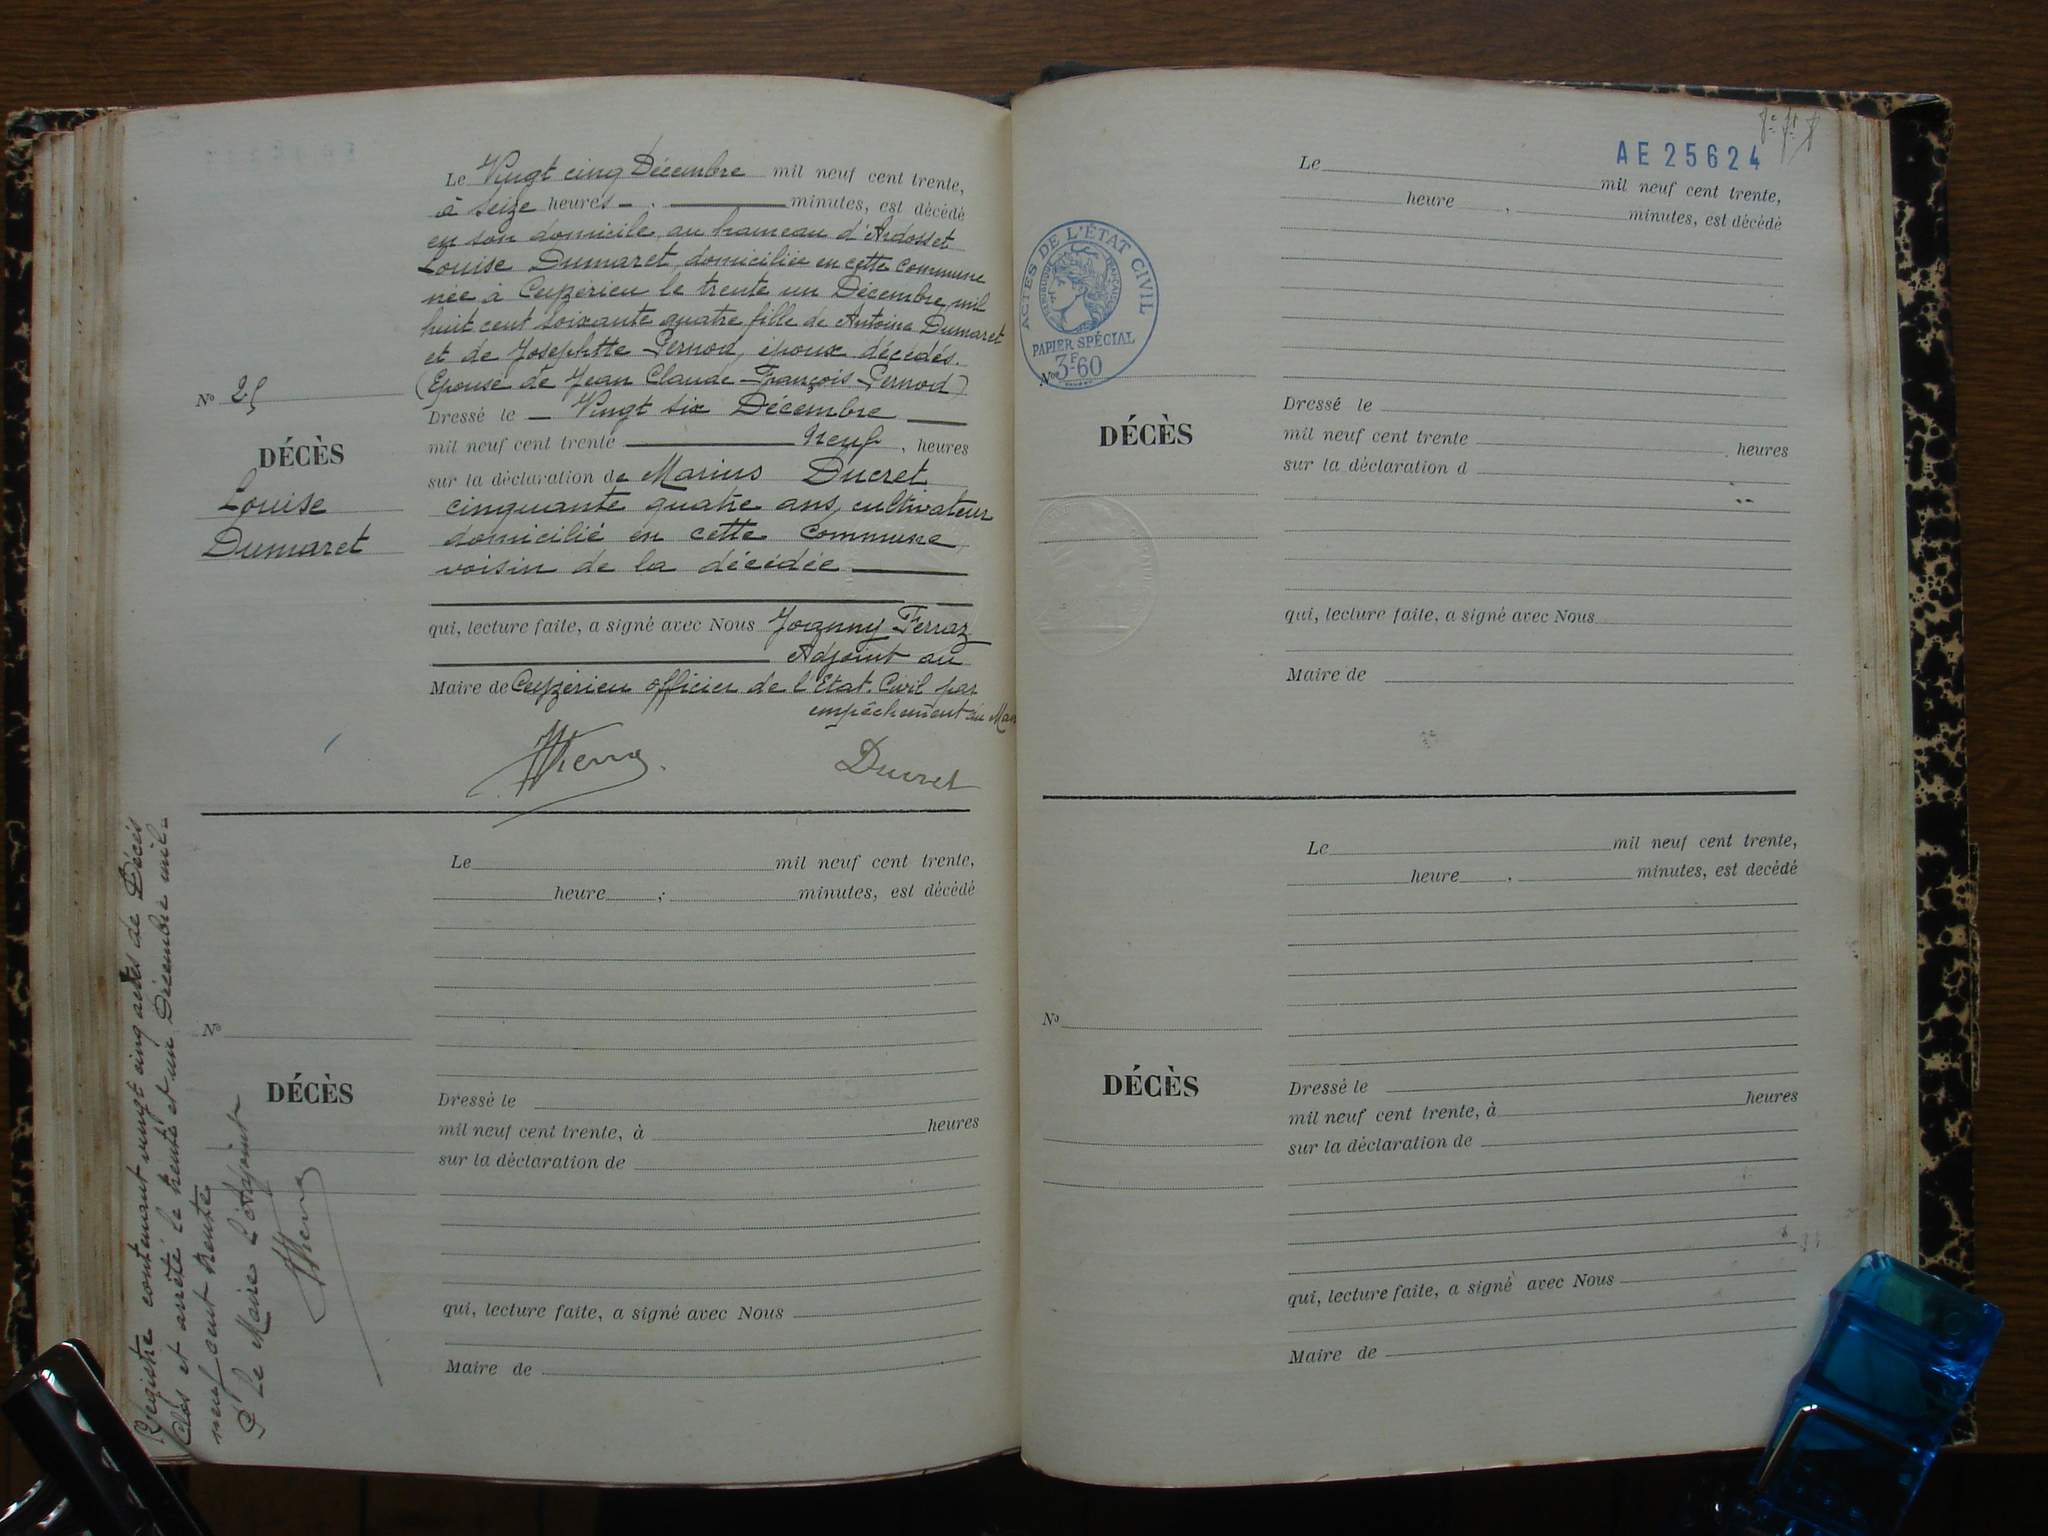 Le Vingt cinq Décembre mil neuf cent trente,
à seize heures minutes, est décédé
en son domicile, au hameau d'Ardosset
Louise Dumaret, domiciliée en cette commune
née à Ceyzérieu le trente un Décembre mil
huit cent soixante quatre fille de Antoine Dumaret
et de Josephtte Pernod, époux décédés.
(Epouse de Jean Claude François Pernod)
No 25
Dressé le Vingt six Décembre
mil neuf cent trente Neuf, heures
DÉCÈS
sur la déclaration de Marius Ducret
Louise
cinquante quatre ans, cultivateur
Dumaret
domicilié en cette commune,
voisin de la décédée
qui, lecture faite, a signé avec Nous Joanny Ferraz
Adjoint au
Maire de Ceyzérieu officier de l'Etat. Civil par
empêchement du
Ducret
Le mil neuf cent trente,
heure ; minutes, est décédé
No
DÉCÈS
Dressé le
mil neuf cent trente, à heures
sur la déclaration de
qui, lecture faite, a signé avec Nous
Maire de
Registre contenant vingt cinq actes de Décès
Clos et arrêté le trente et un Décembre mil-
neuf cent trente
Pr le Maire l'Adjoint
AE 25624
Le mil neuf cent trente,
heure , minutes, est décédé
ACTES DE L'ÉTAT CIVIL
RÉPUBLIQUE FRANÇAISE
PAPIER SPÉCIAL
3F60
No
DÉCÈS
Dressé le
mil neuf cent trente heures
sur la déclaration d
qui, lecture faite, a signé avec Nous
Maire de
Le mil neuf cent trente,
heure , minutes, est decédé
No
DÉCÈS
Dressé le
mil neuf cent trente, à heures
sur la déclaration de
qui, lecture faite, a signé avec Nous
Maire de